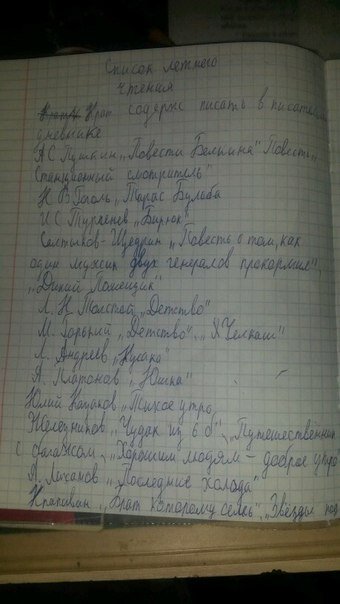 Список летнего
чтения
Крат содерж писать в читательск
дневнике
А С Пушкин „Повести Белкина" Повесть „
Станционный смотритель"
Н В Гоголь „Тарас Бульба
И С Тургенев „Бирюк"
Салтыков-Щедрин „Повесть о том, как
один мужик двух генералов прокормил",
„Дикий Помещик"
Л. Н Толстой „Детство"
М. Горький „Детство", „Челкаш"
Л. Андреев „Кусака"
А. Платонов „Юшка"
Юрий Казаков „Тихое утро
Железников „Чудак из 6 б", „Путешественник
с багажом, „Хорошим людям - доброе утро
А. Лиханов „Последние холода"
Крапивин „Брат которому семь", „Звёзды под